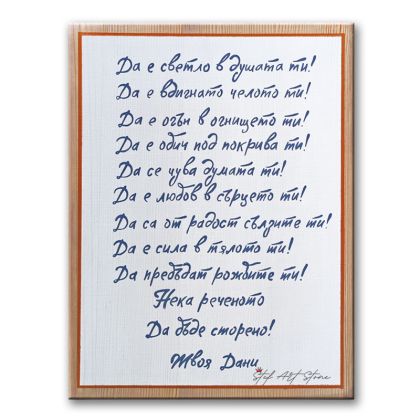 Да е светло в душата ти!
Да е вдигнато челото ти!
Да е огън в огнището ти!
Да е обич под покрива ти!
Да се чува думата ти!
Да е любов в сърцето ти!
Да са от радост сълзите ти!
Да е сила в тялото ти!
Да пребъдат рожбите ти!
Нека реченото
Да бъде сторено!
Твоя Дани
Stef Art Store